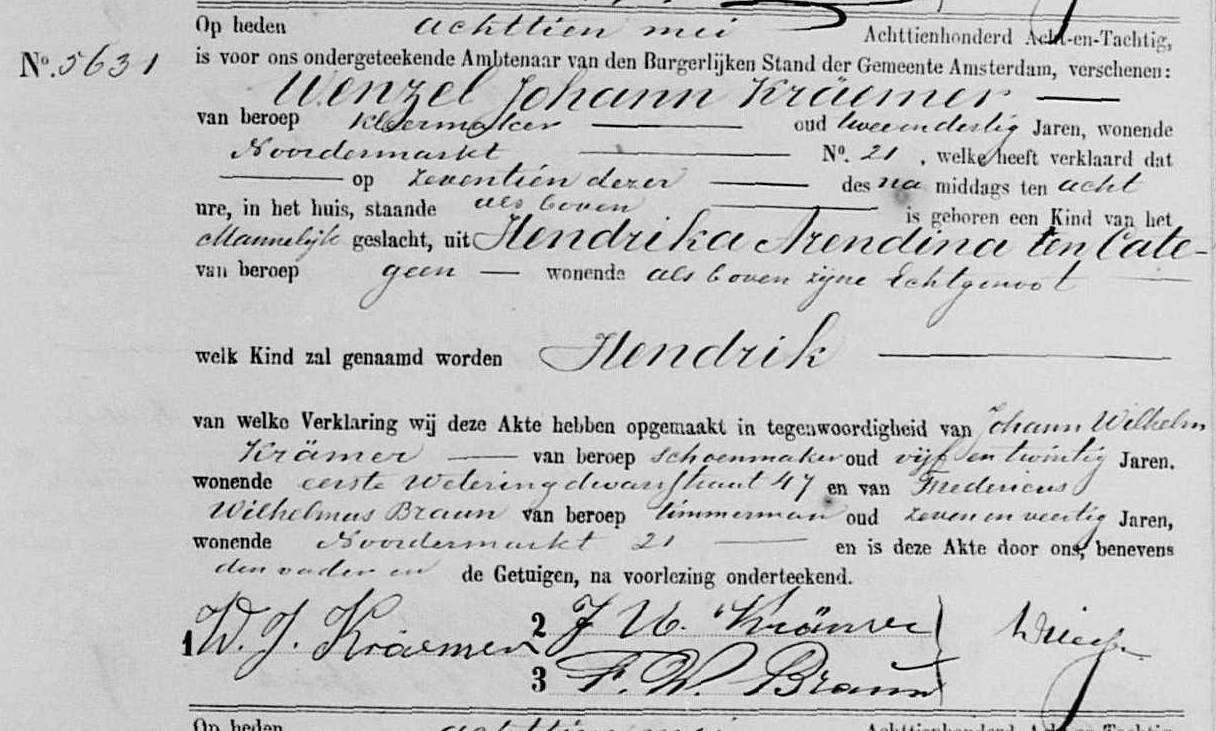 Op heden achttien mei Achttienhonderd Acht-en-Tachtig,
No. 5631 is voor ons ondergeteekende Ambtenaar van den Burgerlijken Stand der Gemeente Amsterdam, verschenen:
Wenzel Johann Kräemer
van beroep kleermaker oud tweeendertig Jaren, wonende
Noordermarkt No. 21, welke heeft verklaard dat
op zeventien dezer des na middags ten acht
ure, in het huis, staande als boven is geboren een Kind van het
Mannelijk geslacht, uit Hendrika Arendina ten Cate
van beroep geen wonende als boven zijne Echtgenoot
welk Kind zal genaamd worden Hendrik
van welke Verklaring wij deze Akte hebben opgemaakt in tegenwoordigheid van Johann Wilhelm
Krämer van beroep schoenmaker oud vijf en twintig Jaren.
wonende eerste Weteringdwarsstraat 47 en van Fredericus
Wilhelmus Braun van beroep timmerman oud zeven en veertig Jaren,
wonende Noordermarkt 21 en is deze Akte door ons, benevens
den vader en de Getuigen, na voorlezing onderteekend.
1 W. J. Kräemer 2 J W. Krämer
3 F. W. Braun
Op heden achttien mei Achttienhonderd Acht-en-Tachtig,